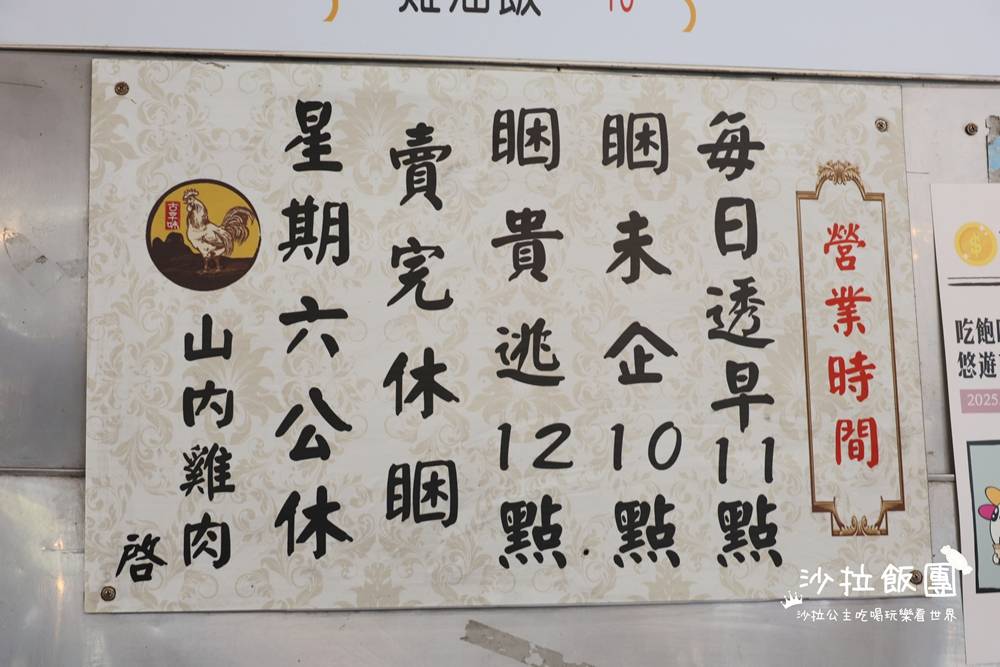 雞油飯 10
營業時間
每日透早11點
睏未企10點
睏貴逃12點
賣完休睏
星期六公休
古早味
山內雞肉
啓
吃飽
悠遊
2025
沙拉飯團
沙拉公主吃喝玩樂看世界